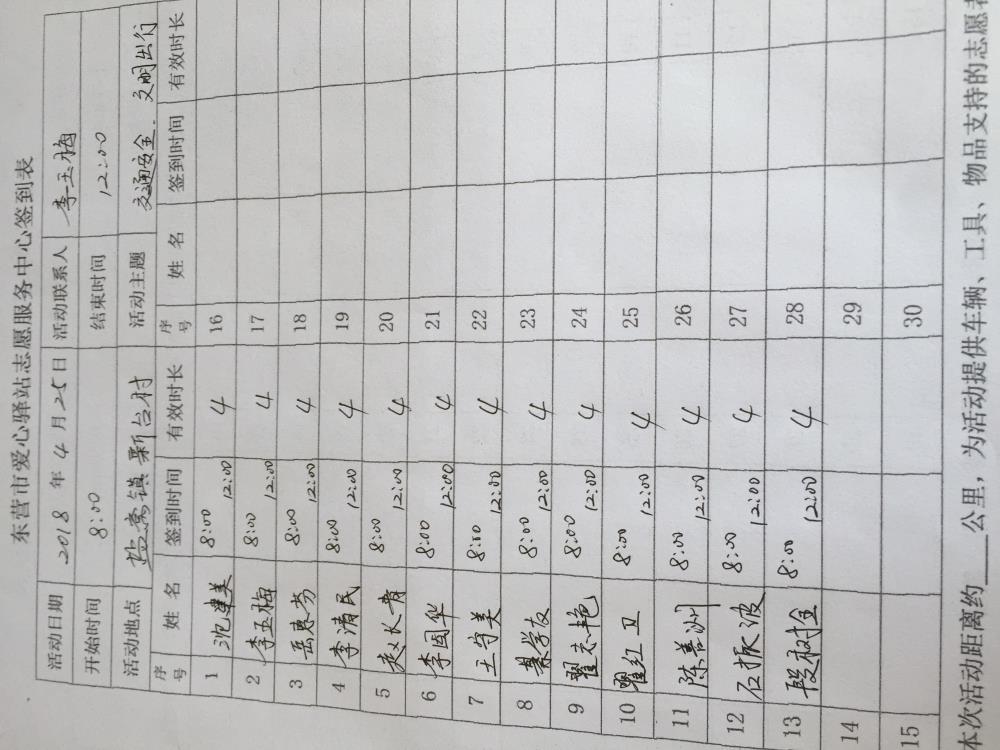 东营市爱心驿站志愿服务中心签到表
活动日期 2018 年 4 月 25 日 活动联系人 李玉梅
开始时间 8:00 结束时间 12:00
活动地点 盐窝镇新台村 活动主题 交通安全.文明出行
序号 姓名 签到时间 有效时长 序号 姓名 签到时间 有效时长
1 沈建美 8:00 12:00 4 16
2 李玉梅 8:00 12:00 4 17
3 岳惠芳 8:00 12:00 4 18
4 李清民 8:00 12:00 4 19
5 长青 8:00 12:00 4 20
6 李国华 8:00 12:00 4 21
7 王守美 8:00 12:00 4 22
8 綦学友 8:00 12:00 4 23
9 翟志艳 8:00 12:00 4 24
10 翟红卫 8:00 12:00 4 25
11 陈善洲 8:00 12:00 4 26
12 石振波 8:00 12:00 4 27
13 段树全 8:00 12:00 4 28
14 29
15 30
本次活动距离约____公里，为活动提供车辆、工具、物品支持的志愿者